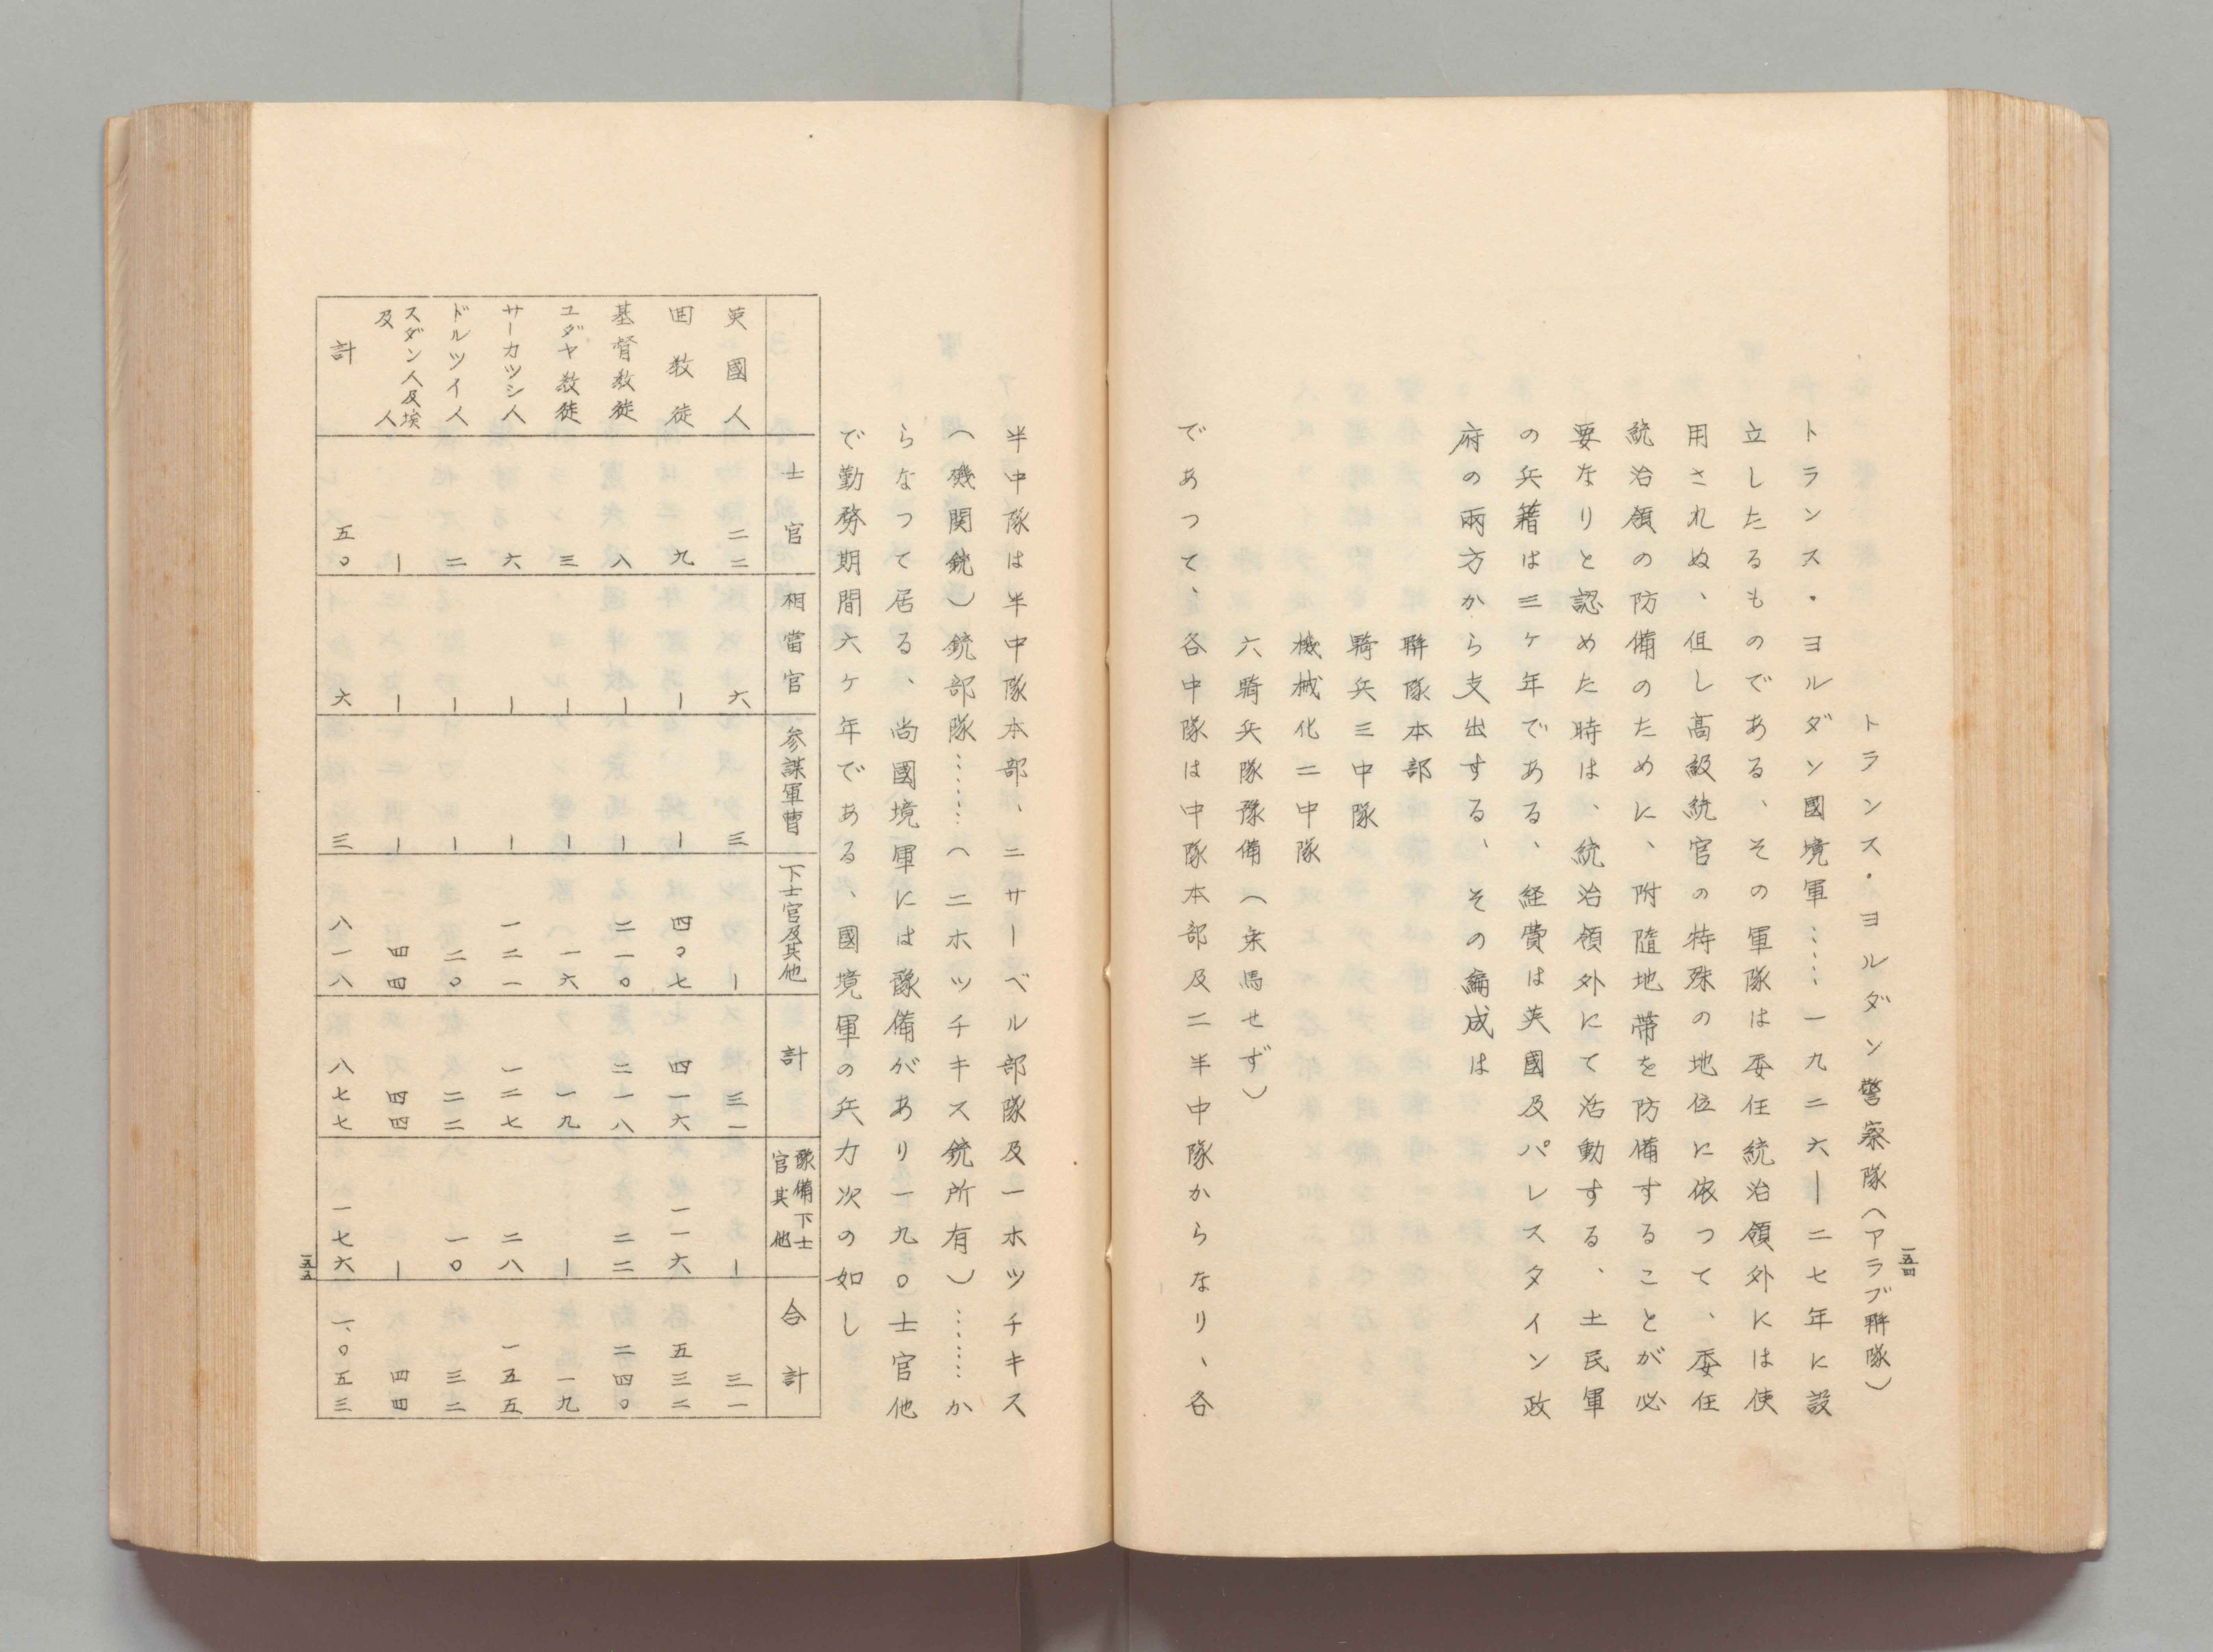 一五四
トランス・ヨルダン警察隊(アラブ聯隊)
トランス・ヨルダン國境軍……一九二六―二七年に設
立したるものである、その軍隊は委任統治領外には使
用されぬ、但し高級統官の特殊の地位に依つて、委任
統治領の防備のために、附隨地帶を防備することが必
要なりと認めた時は、統治領外にて活動する、土民軍
の兵籍は三ケ年である、経費は英國及パレスタイン政
府の兩方から支出する、その編成は
聯隊本部
騎兵三中隊
機械化二中隊
六騎兵隊豫備(乗馬せず)
であつて、各中隊は中隊本部及二半中隊からなり、各
半中隊は半中隊本部、二サーベル部隊及一ホツチキス
(機関銃)銃部隊……(二ホツチキス銃所有)……か
らなつて居る、尚國境軍には豫備があり一九〇士官他
で勤務期間六ケ年である、國境軍の兵力次の如し
士官 相當官 参謀軍曹 下士官及其他 計 豫備下士官其他 合計
英國人 二二 六 三 ― 三一 ― 三一
回教徒 九 ― ― 四〇七 四一六 一一六 五三二
基督教徒 八 ― ― 二一〇 二一八 二二 二四〇
ユダヤ教徒 三 ― ― 一六 一九 ― 一九
サーカツシ人 六 ― ― 一二一 一二七 二八 一五五
ドルツイ人 二 ― ― 二〇 二二 一〇 三二
スダン人及埃及人 ― ― ― 四四 四四 ― 四四
計 五〇 六 三 八一八 八七七 一七六 一、〇五三
一五五